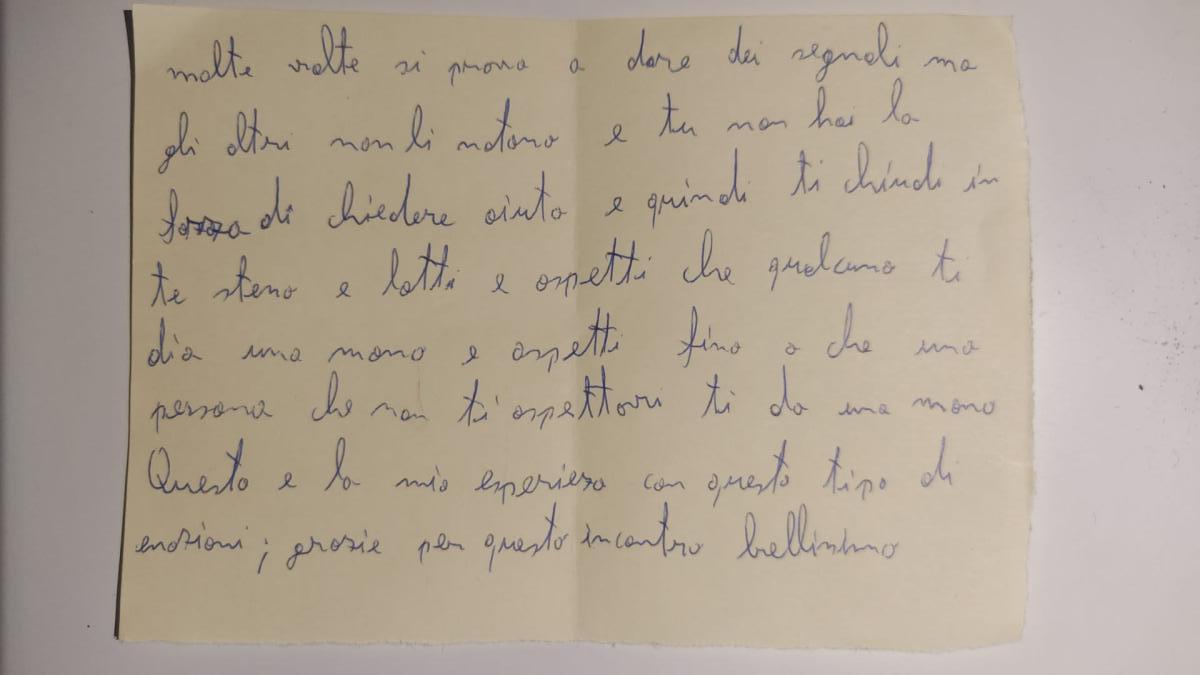 molte volte si prova a dare dei segnali ma
gli altri non li notano e tu non hai la
forza di chiedere aiuto e quindi ti chiudi in
te stesso e lotti e aspetti che qualcuno ti
dia una mano e aspetti fino a che una
persona che non ti aspettavi ti da una mano
Questa e la mia esperieza con questo tipo di
emozioni; grazie per questo incontro bellissimo